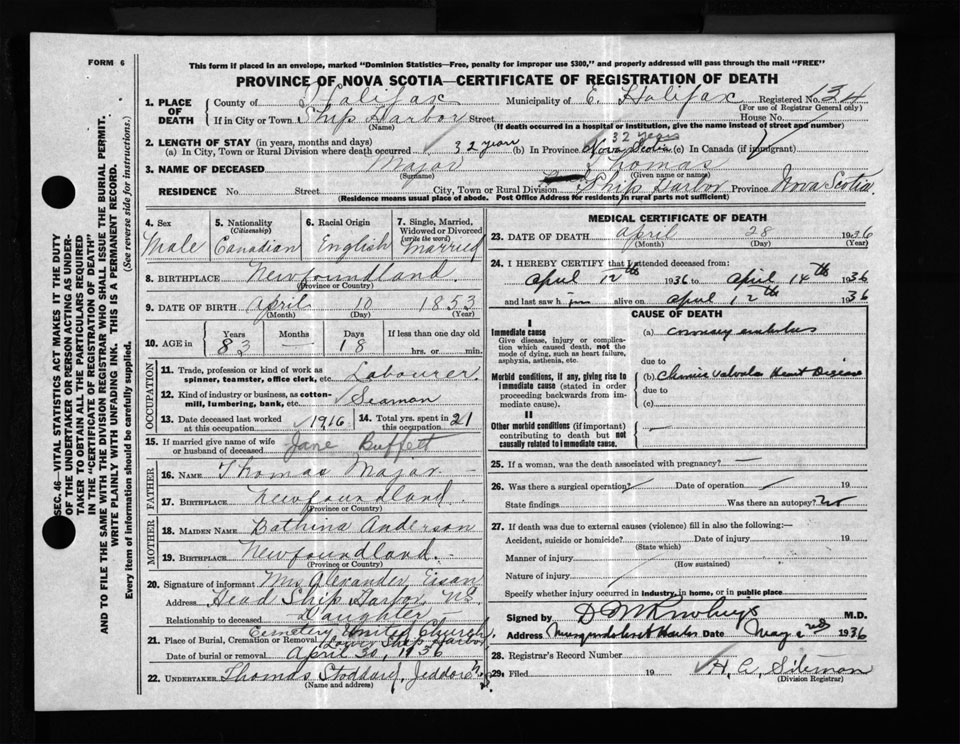 FORM 6
This form if placed in an envelope, marked "Dominion Statistics—Free, penalty for improper use $300," and properly addressed will pass through the mail "FREE"
PROVINCE OF NOVA SCOTIA—CERTIFICATE OF REGISTRATION OF DEATH
1. PLACE OF DEATH County of Halifax Municipality of E. Halifax Registered No. 134
(For use of Registrar General only)
If in City or Town Ship Harbor Street House No.
(Name) (If death occurred in a hospital or institution, give the name instead of street and number)
2. LENGTH OF STAY (in years, months and days) 32 years
(a) In City, Town or Rural Division where death occurred 32 years (b) In Province Nova Scotia (c) In Canada (if immigrant)
3. NAME OF DECEASED Major Thomas
(Surname) (Given name or names)
RESIDENCE No. Street City, Town or Rural Division Ship Harbor Province Nova Scotia
(Residence means usual place of abode. Post Office Address for residents in rural parts not sufficient)
4. Sex Male
5. Nationality (Citizenship) Canadian
6. Racial Origin English
7. Single, Married, Widowed or Divorced (write the word) Married
8. BIRTHPLACE Newfoundland
(Province or Country)
9. DATE OF BIRTH April 10 1853
(Month) (Day) (Year)
10. AGE in Years 83 Months — Days 18 If less than one day old hrs. or min.
OCCUPATION
11. Trade, profession or kind of work as spinner, teamster, office clerk, etc. Labourer
12. Kind of industry or business, as cotton-mill, lumbering, bank, etc. Seaman
13. Date deceased last worked at this occupation 1916
14. Total yrs. spent in this occupation 21
15. If married give name of wife or husband of deceased Jane Buffett
FATHER
16. NAME Thomas Major
17. BIRTHPLACE Newfoundland
(Province or Country)
MOTHER
18. MAIDEN NAME Bathina Anderson
19. BIRTHPLACE Newfoundland
(Province or Country)
20. Signature of informant Mrs Alexander Eisan
Address Head Ship Harbor, NS
Relationship to deceased Daughter
21. Place of Burial, Cremation or Removal Cemetery United Church Lower Ship Harbor
Date of burial or removal April 30, 1936
22. UNDERTAKER Thomas Stoddard, Jeddore
(Name and address)
MEDICAL CERTIFICATE OF DEATH
23. DATE OF DEATH April 28 1936
(Month) (Day) (Year)
24. I HEREBY CERTIFY that I attended deceased from:
April 12th 1936 to April 14th 1936
and last saw him alive on April 12th 1936
CAUSE OF DEATH
I
Immediate cause (a) coronary embolus
Give disease, injury or complication which caused death, not the mode of dying, such as heart failure, asphyxia, asthenia, etc.
due to
Morbid conditions, if any, giving rise to immediate cause (stated in order proceeding backwards from immediate cause).
(b) Chronic Valvular Heart Disease
due to
(c)
II
Other morbid conditions (if important) contributing to death but not causally related to immediate cause. —
25. If a woman, was the death associated with pregnancy? —
26. Was there a surgical operation? Date of operation 19
State findings Was there an autopsy? no
27. If death was due to external causes (violence) fill in also the following:—
Accident, suicide or homicide? Date of injury 19
(State which)
Manner of injury
(How sustained)
Nature of injury
Specify whether injury occurred in industry, in home, or in public place
Signed by M.D.
Address Musquodoboit Harbor Date May 2nd 1936
28. Registrar's Record Number
29. Filed 19 H. A. Siteman
(Division Registrar)
SEC. 46—VITAL STATISTICS ACT MAKES IT THE DUTY
OF THE UNDERTAKER OR PERSON ACTING AS UNDER-
TAKER TO OBTAIN ALL THE PARTICULARS REQUIRED
IN THE "CERTIFICATE OF REGISTRATION OF DEATH"
AND TO FILE THE SAME WITH THE DIVISION REGISTRAR WHO SHALL ISSUE THE BURIAL PERMIT.
WRITE PLAINLY WITH UNFADING INK. THIS IS A PERMANENT RECORD.
Every item of information should be carefully supplied. (See reverse side for instructions.)